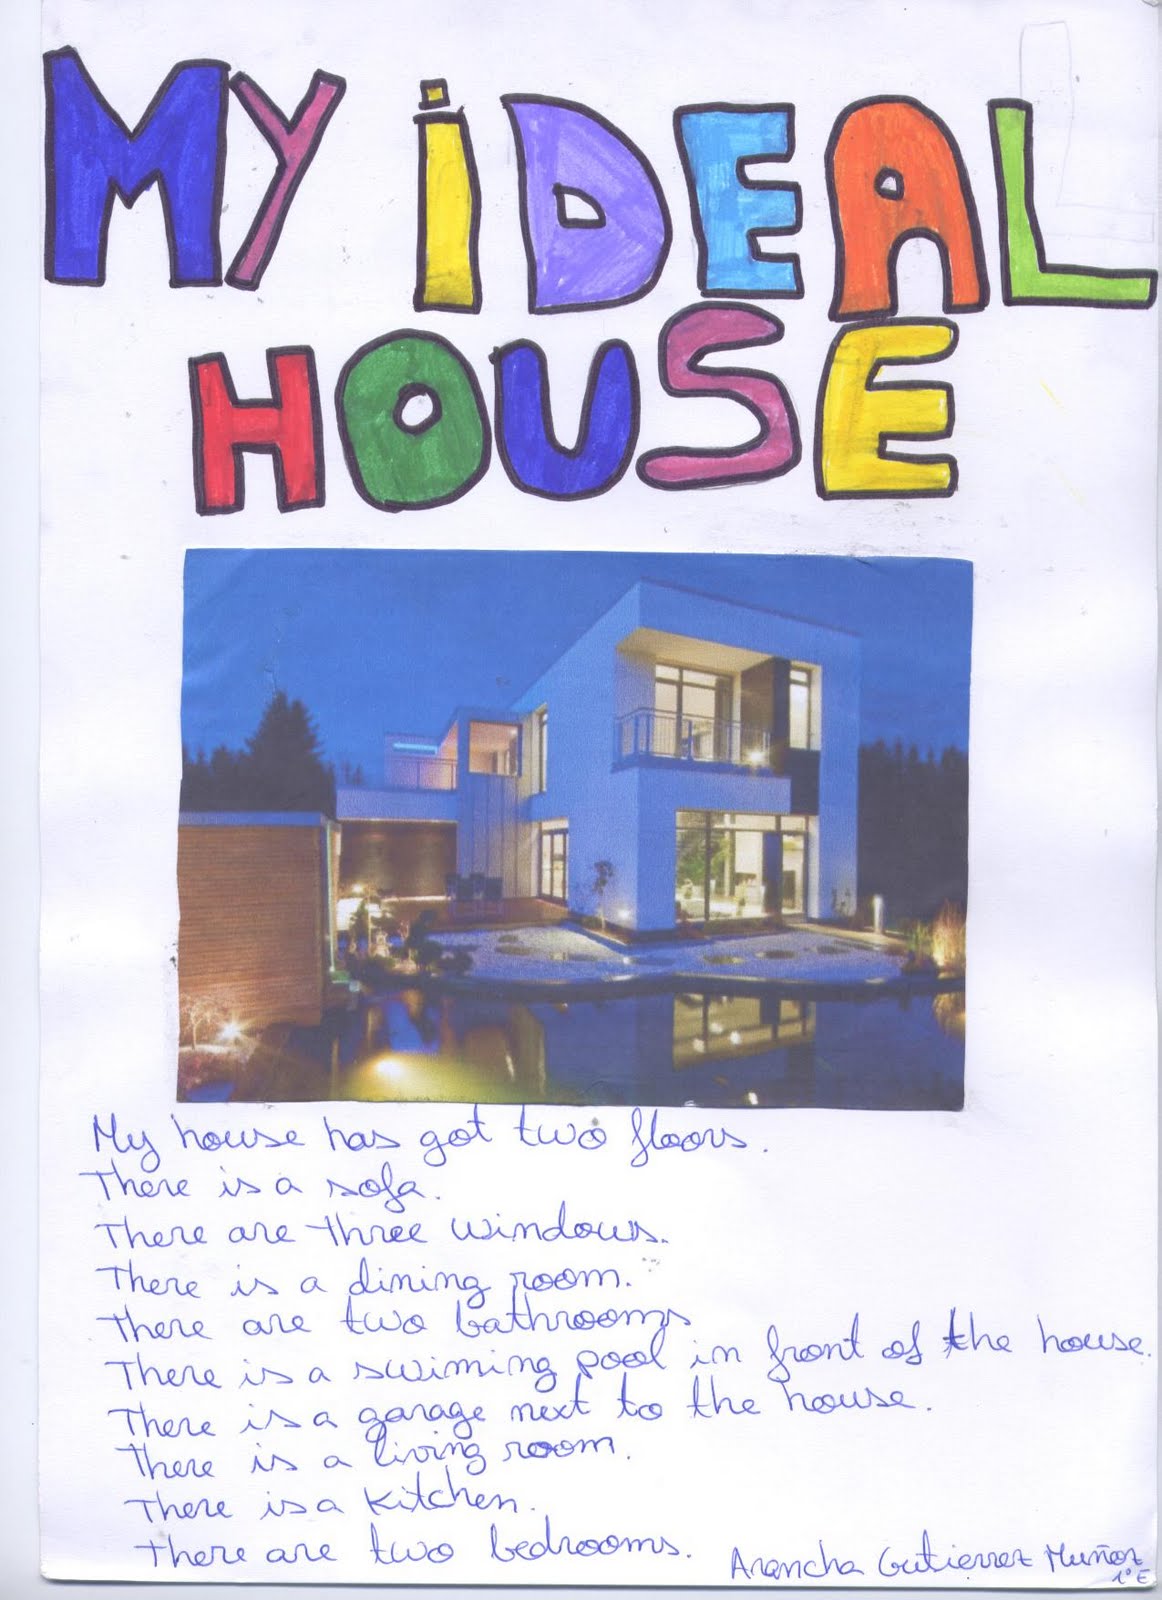 MY iDEAL
HOUSE
My house has got two floors.
There is a sofa.
There are three windows.
There is a dining room.
There are two bathrooms
There is a swiming pool in front of the house.
There is a garage next to the house.
There is a living room.
There is a kitchen.
There are two bedrooms.
Arancha Gutierrez Muñoz
1º E